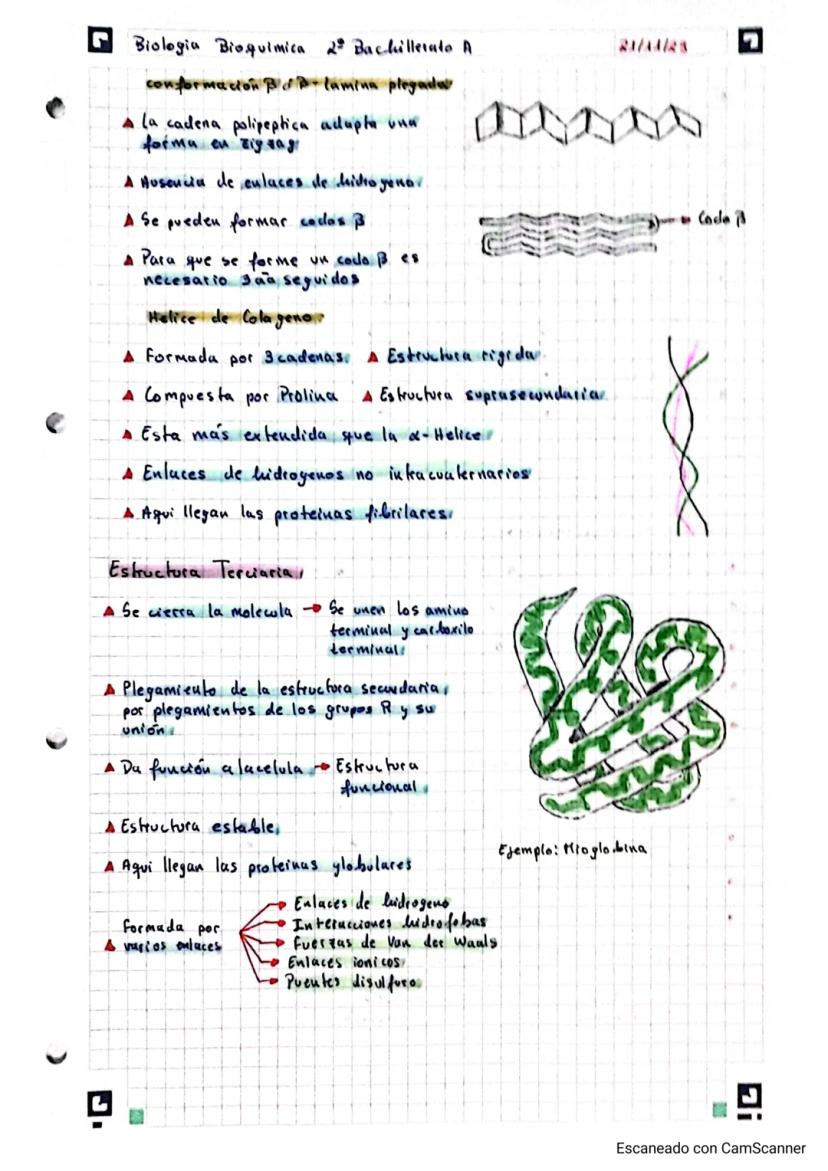 Biologia Bioquimica 2º Bachillerato A
21/11/23
conformación β ó β-lamina plegada
La cadena polipeptica adapta una
forma en zigzag
Ausencia de enlaces de hidrogeno.
Se pueden formar codos β
Codo β
Para que se forme un codo β es
necesario 3 aa seguidos
Helice de Colageno:
Formada por 3 cadenas.
Estructura rigida
Compuesta por Prolina
Estructura suprasecundaria
Esta más extendida que la α-Helice
Enlaces de hidrogenos no intracuaternarios
Aqui llegan las proteinas fibrilares.
Estructura Terciaria
Se cierra la molecula → Se unen los amino
terminal y carboxilo
terminal.
Plegamiento de la estructura secundaria,
por plegamientos de los grupos R y su
unión.
Da función a la celula → Estructura
funcional.
Estructura estable.
Ejemplo: Mioglobina
Aqui llegan las proteinas globulares
Formada por
varios enlaces
Enlaces de hidrogeno
Interacciones hidrofobas
Fuerzas de Van der Waals
Enlaces ionicos
Puentes disulfuro
Escaneado con CamScanner